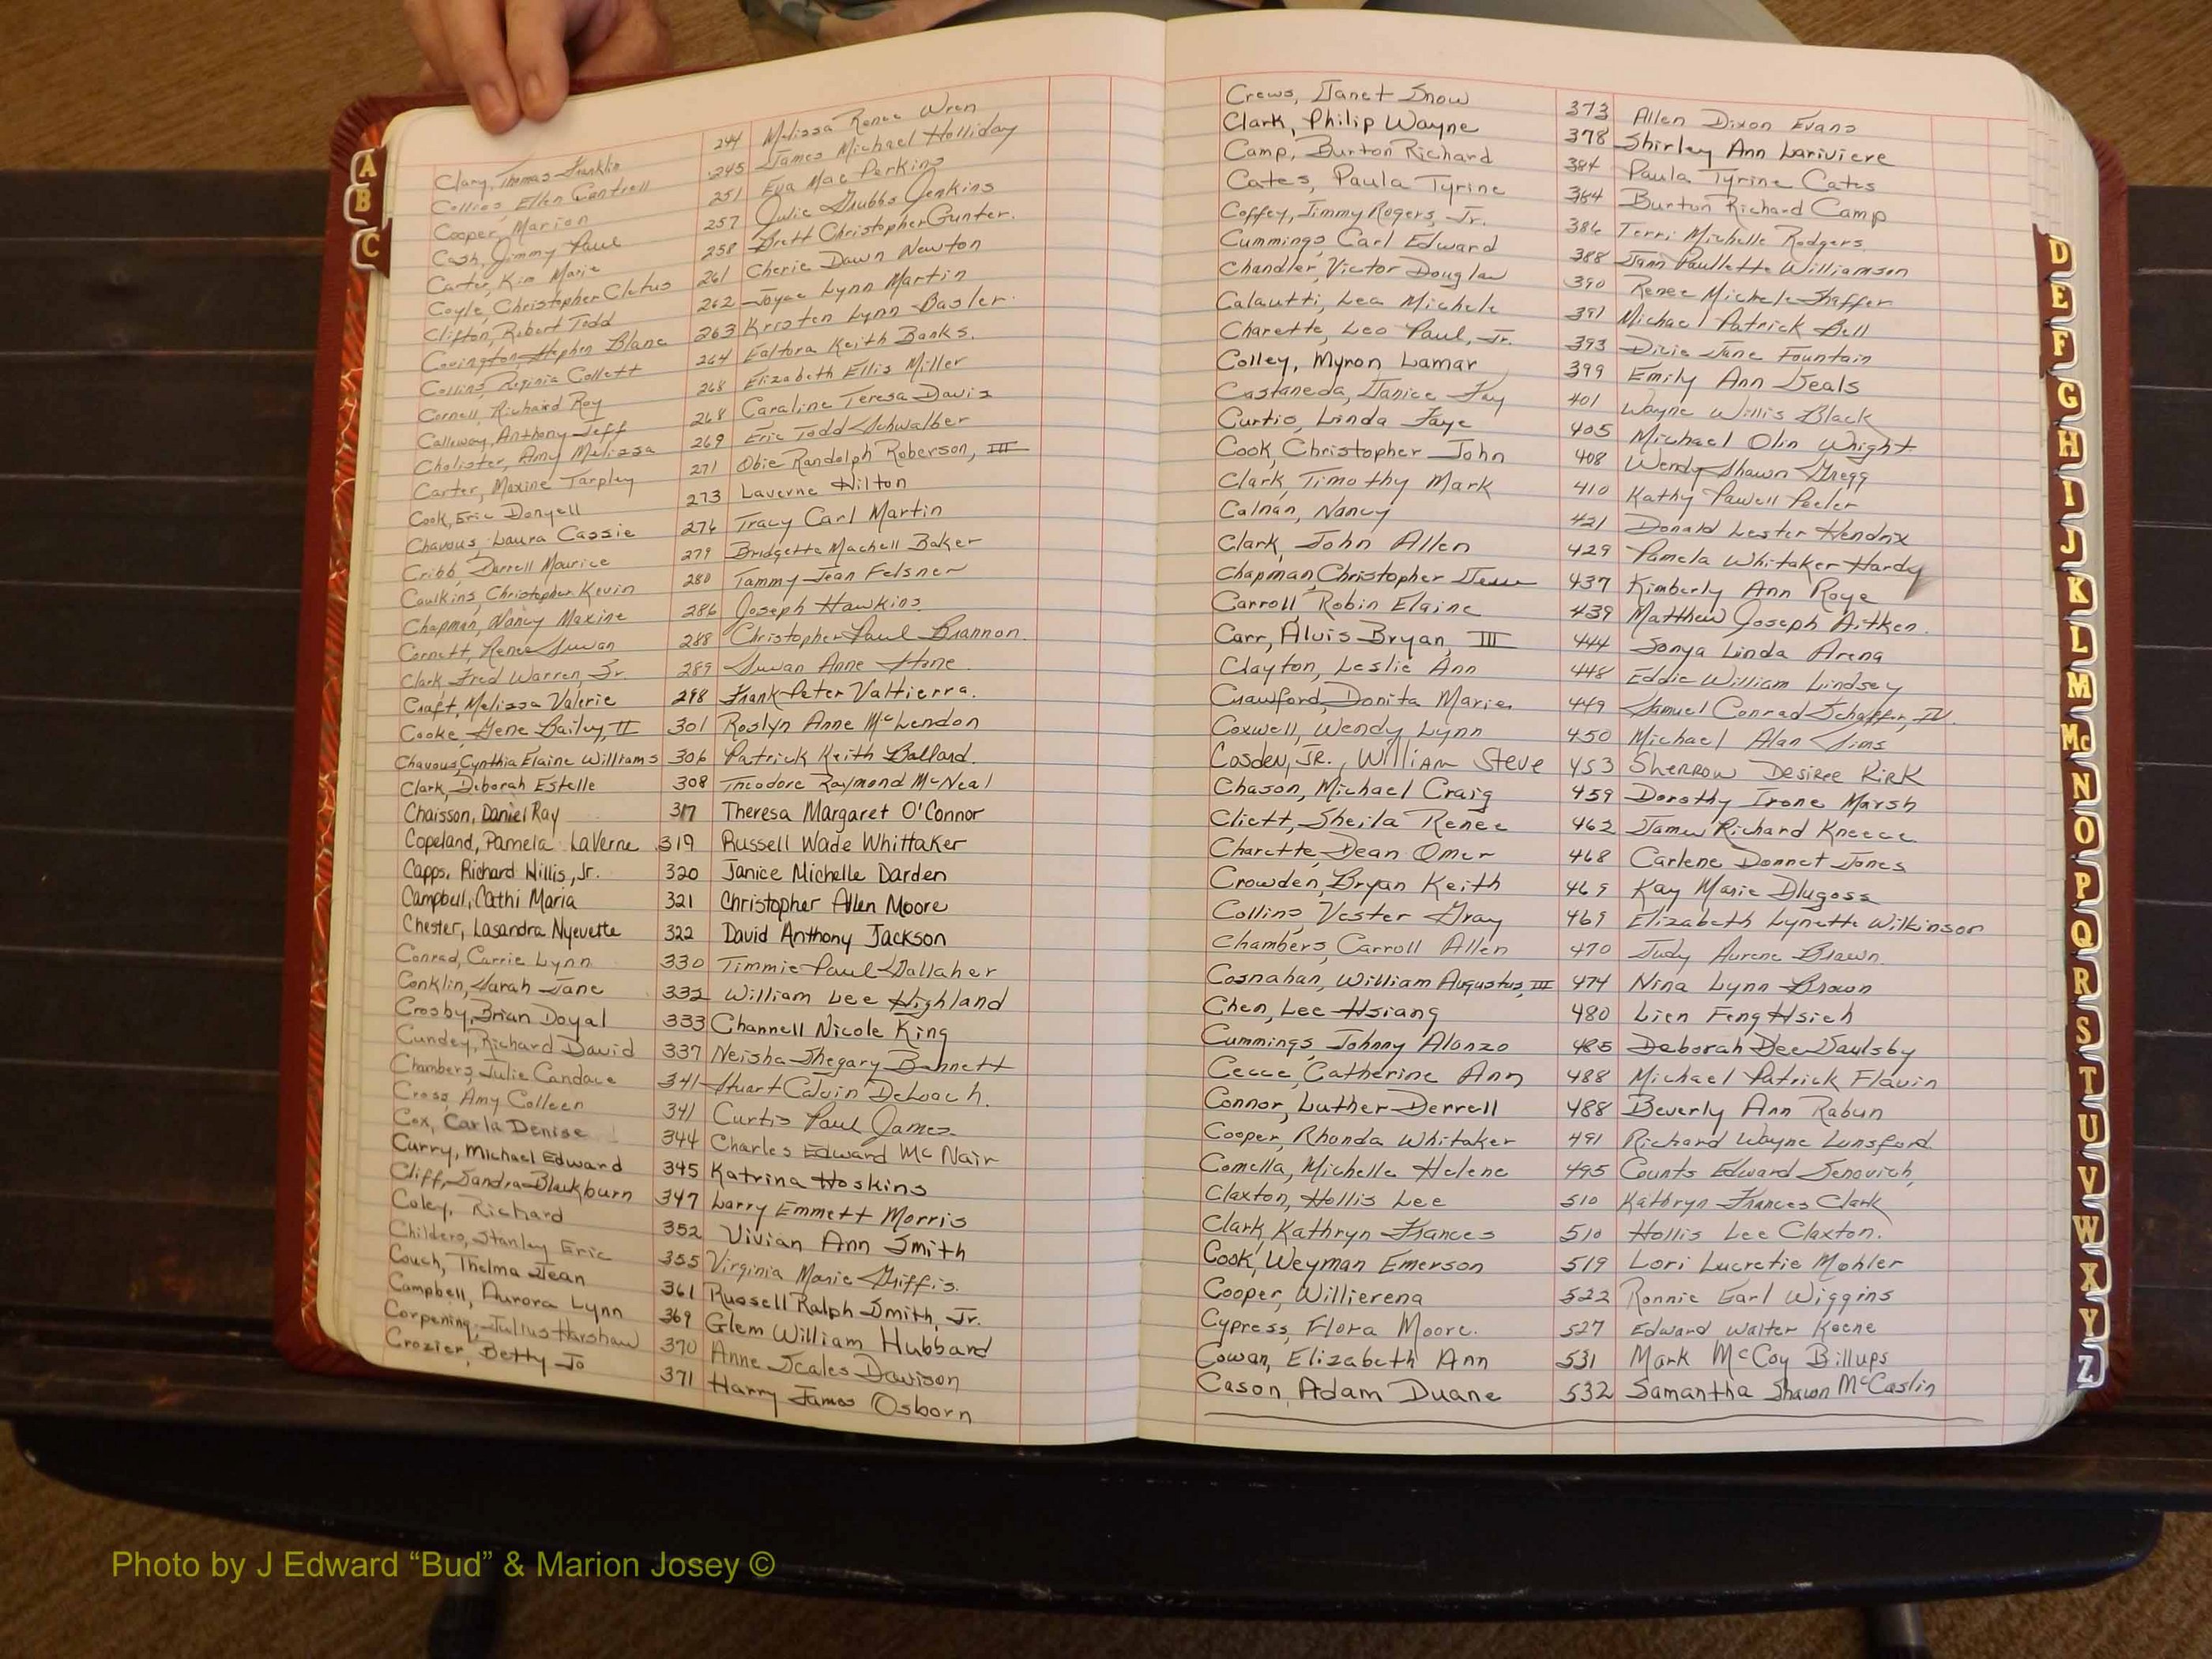 A
B
C
Clary, Thomas Franklin 244 Melissa Renee Wren
Collins, Ellen Cantrell 245 James Michael Holliday
Cooper, Marion 251 Eva Mae Perkins
Cash, Jimmy Paul 257 Julie Grubbs Jenkins
Carter, Kim Marie 258 Brett Christopher Gunter.
Coyle, Christopher Cletus 261 Cherie Dawn Newton
Clifton, Robert Todd 262 Joyce Lynn Martin
Covington, Stephen Blane 263 Kristen Lynn Basler.
Collins, Reginia Collett 264 Ealtora Keith Banks.
Cornell, Richard Roy 268 Elizabeth Ellis Miller
Calleway, Anthony Jeff 268 Caraline Teresa Davis
Cholister, Amy Melissa 269 Eric Todd Schwalber
Carter, Maxine Tarpley 271 Obie Randolph Roberson, III
Cook, Eric Donyell 273 Laverne Hilton
Chavous, Laura Cassie 276 Tracy Carl Martin
Cribb, Darrell Maurice 279 Bridgette Machell Baker
Caulkins, Christopher Kevin 280 Tammy Jean Felsner
Chapman, Nancy Maxine 286 Joseph Hawkins
Cornett, Renee Susan 288 Christopher Paul Brannon.
Clark, Fred Warren, Jr. 289 Susan Anne Stone
Craft, Melissa Valerie 298 Frank Peter Valtierra.
Cooke, Gene Bailey, II 301 Roslyn Anne McLendon
Chavous, Cynthia Elaine Williams 306 Patrick Keith Ballard.
Clark, Deborah Estelle 308 Theodore Raymond McNeal
Chaisson, Daniel Ray 317 Theresa Margaret O'Connor
Copeland, Pamela LaVerne 319 Russell Wade Whittaker
Capps, Richard Hillis, Jr. 320 Janice Michelle Darden
Campbell, Cathi Maria 321 Christopher Allen Moore
Chester, Lasandra Nyevette 322 David Anthony Jackson
Conrad, Carrie Lynn 330 Timmie Paul Gallaher
Conklin, Sarah Jane 332 William Lee Highland
Crosby, Brian Doyal 333 Channell Nicole King
Cundey, Richard David 337 Neisha Shegary Bennett
Chambers, Julie Candace 341 Stuart Calvin DeLoach.
Cross, Amy Colleen 341 Curtis Paul James
Cox, Carla Denise 344 Charles Edward McNair
Curry, Michael Edward 345 Katrina Hoskins
Cliff, Sandra Blackburn 347 Larry Emmett Morris
Coley, Richard 352 Vivian Ann Smith
Childers, Stanley Eric 355 Virginia Marie Griffis.
Couch, Thelma Jean 361 Russell Ralph Smith, Jr.
Campbell, Aurora Lynn 369 Glem William Hubbard
Corpening, Julius Harshaw 370 Anne Scales Davison
Crozier, Betty Jo 371 Harry James Osborn
Crews, Janet Snow 373 Allen Dixon Evans
Clark, Philip Wayne 378 Shirley Ann Lariviere
Camp, Burton Richard 384 Paula Tyrine Cates
Cates, Paula Tyrine 384 Burton Richard Camp
Coffey, Jimmy Rogers, Jr. 386 Terri Michelle Rodgers
Cummings, Carl Edward 388 Jann Paullette Williamson
Chandler, Victor Douglas 390 Renee Michele Shaffer
Calautti, Lea Michele 391 Michael Patrick Bell
Charette, Leo Paul, Jr. 393 Dixie Jane Fountain
Colley, Myron Lamar 399 Emily Ann Deals
Castaneda, Janice Fay 401 Wayne Willis Black
Curtis, Linda Faye 405 Michael Olin Wright
Cook, Christopher John 408 Wendy Shawn Gregg
Clark, Timothy Mark 410 Kathy Powell Peeler
Calnan, Nancy 421 Donald Lester Hendrix
Clark, John Allen 429 Pamela Whitaker Hardy
Chapman, Christopher 437 Kimberly Ann Roye
Carroll, Robin Elaine 439 Matthew Joseph Aitken.
Carr, Alvis Bryan, III 444 Sonya Linda Arena
Clayton, Leslie Ann 448 Eddie William Lindsey
Crawford, Donita Marie 449 Samuel Conrad Schaffer, IV.
Coxwell, Wendy Lynn 450 Michael Alan Sims
Cosden, JR., William Steve 453 Sherrow Desiree Kirk
Chason, Michael Craig 459 Dorothy Irene Marsh
Cliett, Sheila Renee 462 James Richard Kneece
Charette, Dean Omer 468 Carlene Donnet Jones
Crowden, Bryan Keith 469 Kay Marie Dlugoss
Collins, Vester Gray 469 Elizabeth Lynette Wilkinson
Chambers, Carroll Allen 470 Judy Aurene Brown.
Cosnahan, William Augustus, III 474 Nina Lynn Brown
Chen, Lee Hsiang 480 Lien Feng Hsieh
Cummings, Johnny Alonzo 485 Deborah Dee Saulsby
Cecce, Catherine Ann 488 Michael Patrick Flavin
Connor, Luther Derrell 488 Beverly Ann Rabun
Cooper, Rhonda Whitaker 491 Richard Wayne Lunsford.
Comella, Michelle Helene 495 Counts Edward Senovich,
Claxton, Hollis Lee 510 Kathryn Frances Clark
Clark, Kathryn Frances 510 Hollis Lee Claxton.
Cook, Weyman Emerson 519 Lori Lucretie Mohler
Cooper, Willierena 522 Ronnie Earl Wiggins
Cypress, Flora Moore. 527 Edward Walter Keene
Cowan, Elizabeth Ann 531 Mark McCoy Billups
Cason, Adam Duane 532 Samantha Shawn McCaslin
D
E
F
G
H
I
J
K
L
M
Mc
N
O
P
Q
R
S
T
U
V
W
X
Y
Z
Photo by J Edward “Bud” & Marion Josey ©